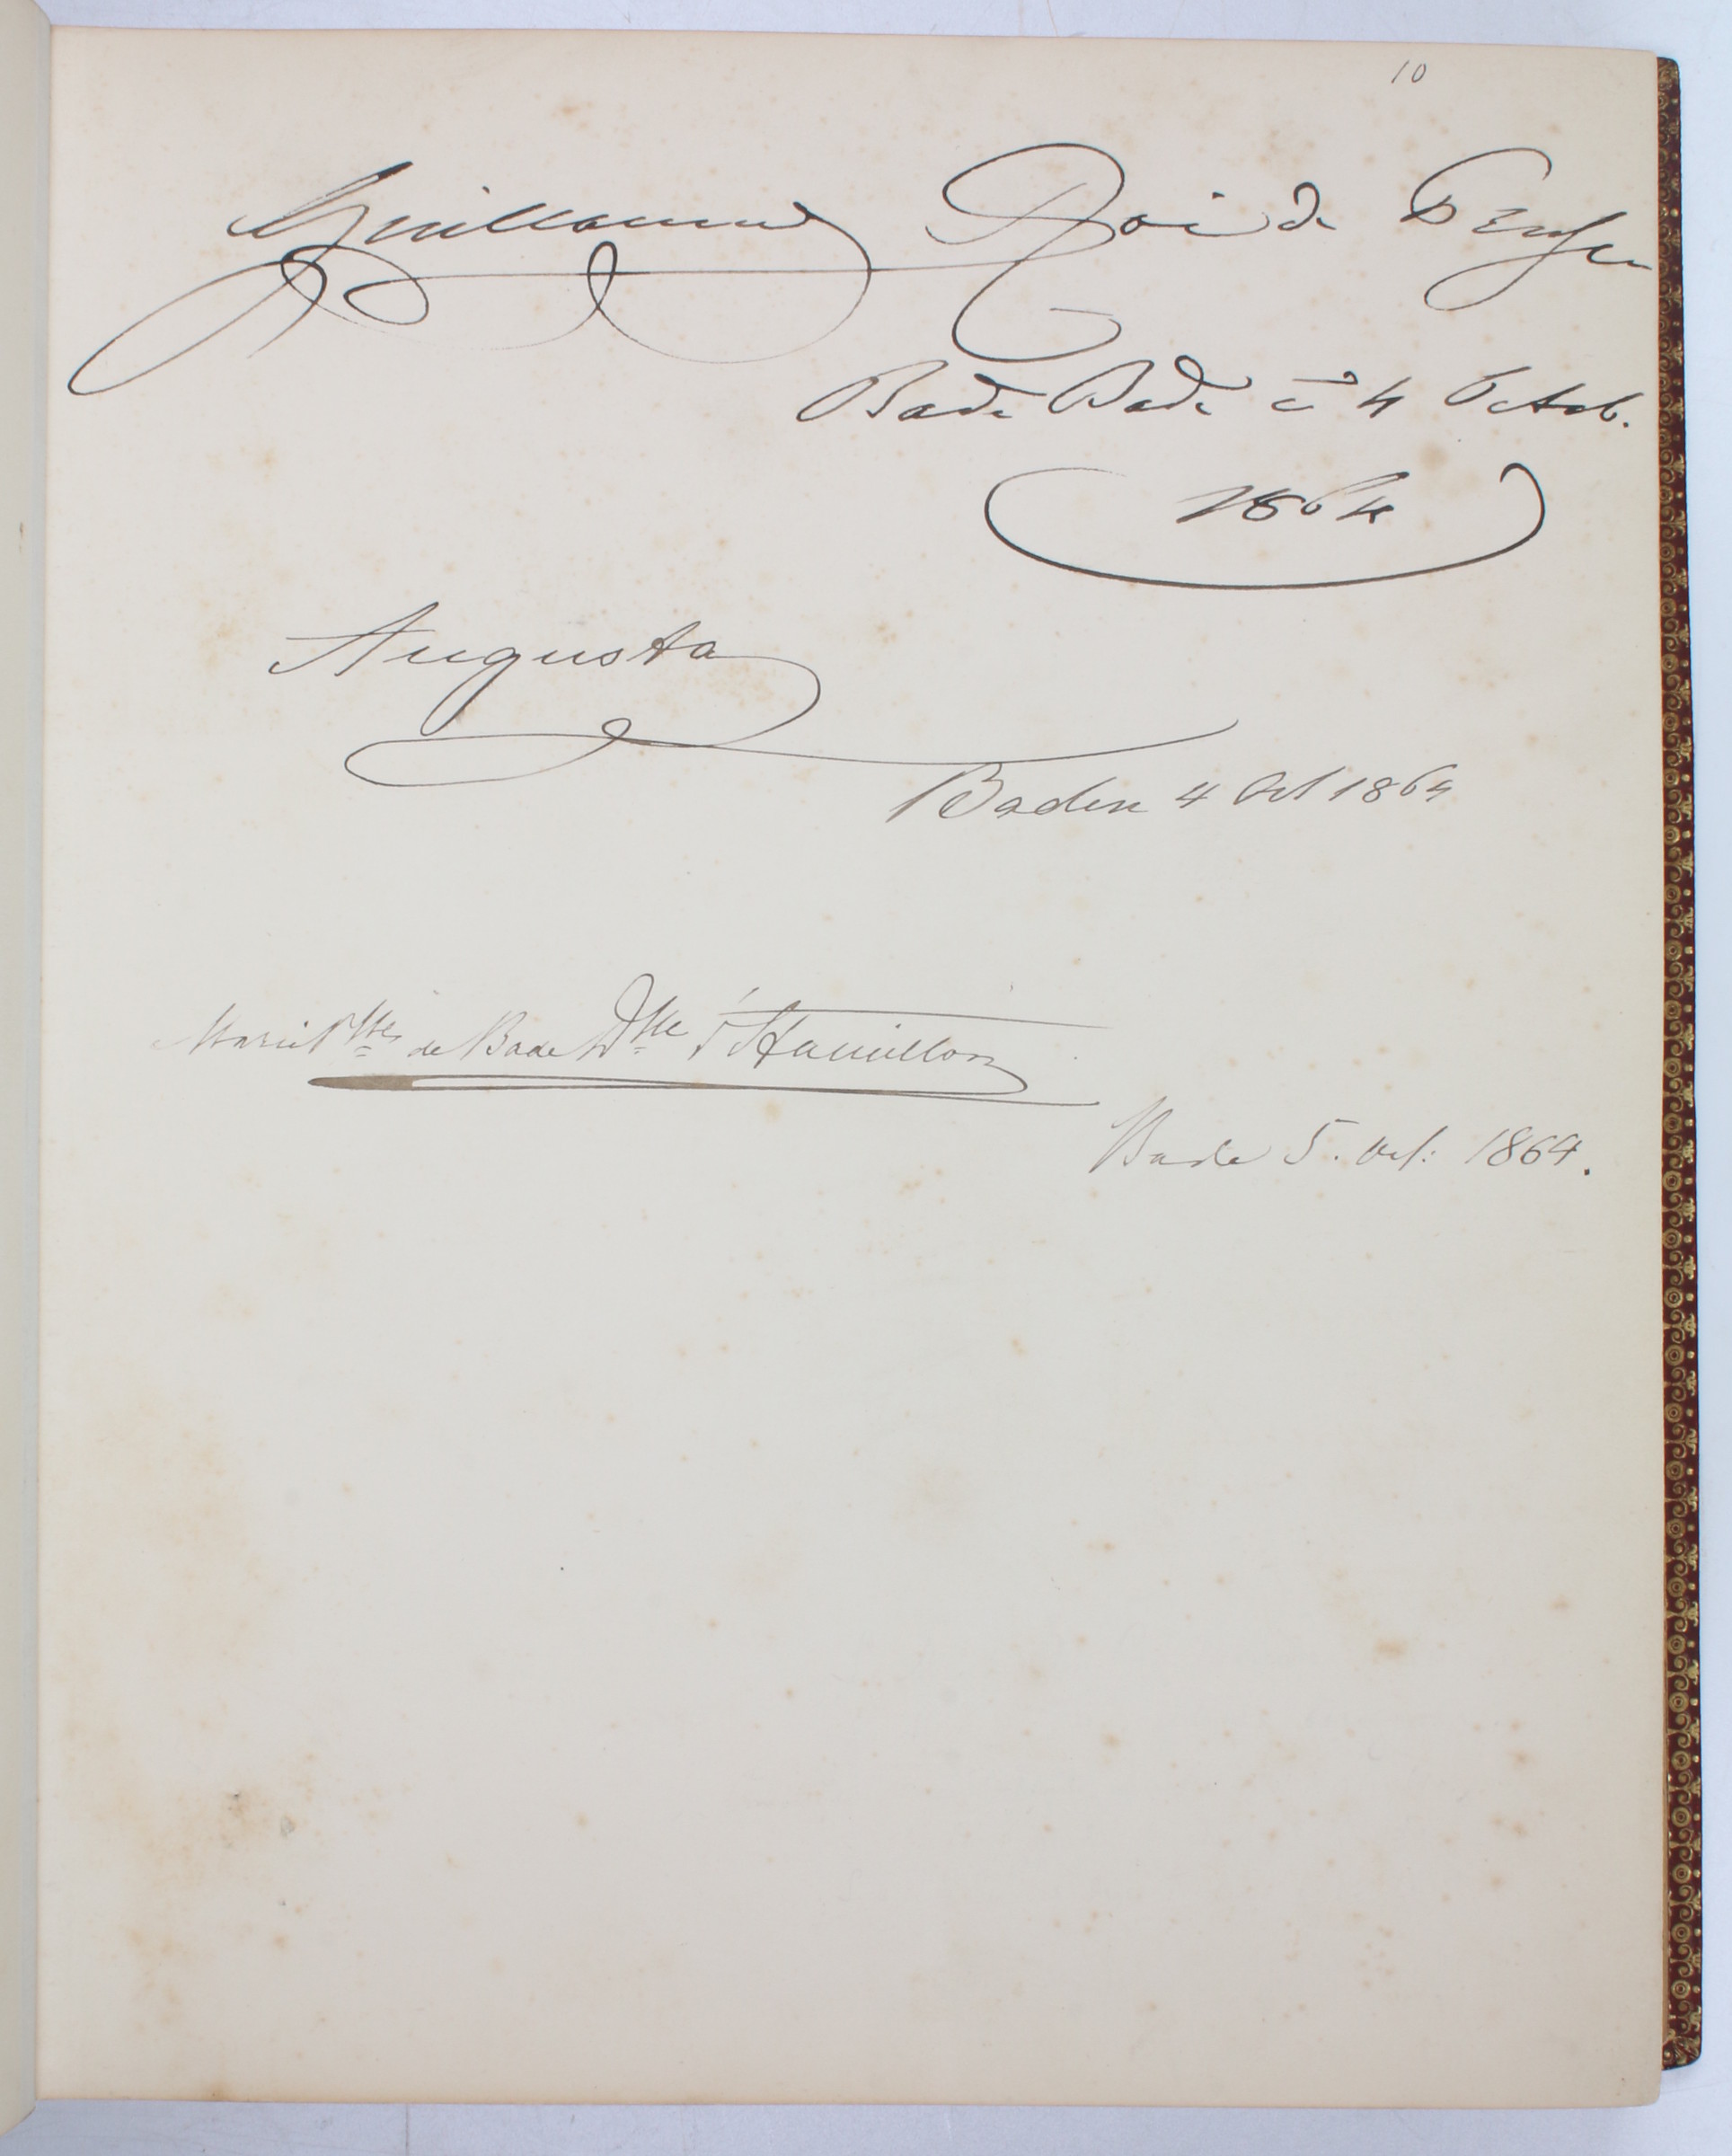 10
Guillaume Roi de Prusse
Bade Bade ce 4 Octob.
1864
Augusta
Baden 4 Oct 1864
Marie Psse de Bade Dsse d'Hamilton
Bade 5. Oct: 1864.